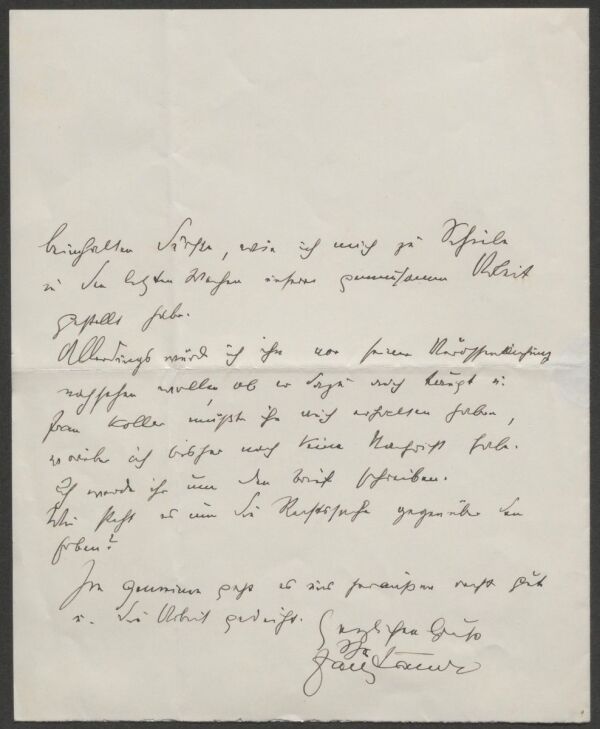 beinhalten dürfte, wie ich mich zu Schiele
in den letzten Wochen unserer gemeinsamen Arbeit
gestellt habe.
Allerdings würde ich ihn vor seiner Veröffentlichung
nachsehen wollen, ob er dazu auch taugt u.
Frau Koller müßte ihn auch erhalten haben,
worüber ich bisher noch keine Nachricht habe.
Ich werde ihr um den Brief schreiben.
Wie steht es um die Rechtssache gegenüber den
Erben?
Im gemeinen geht es uns heraußen recht gut
u. die Arbeit gedeiht.
Herzlichen Gruß
Ihr